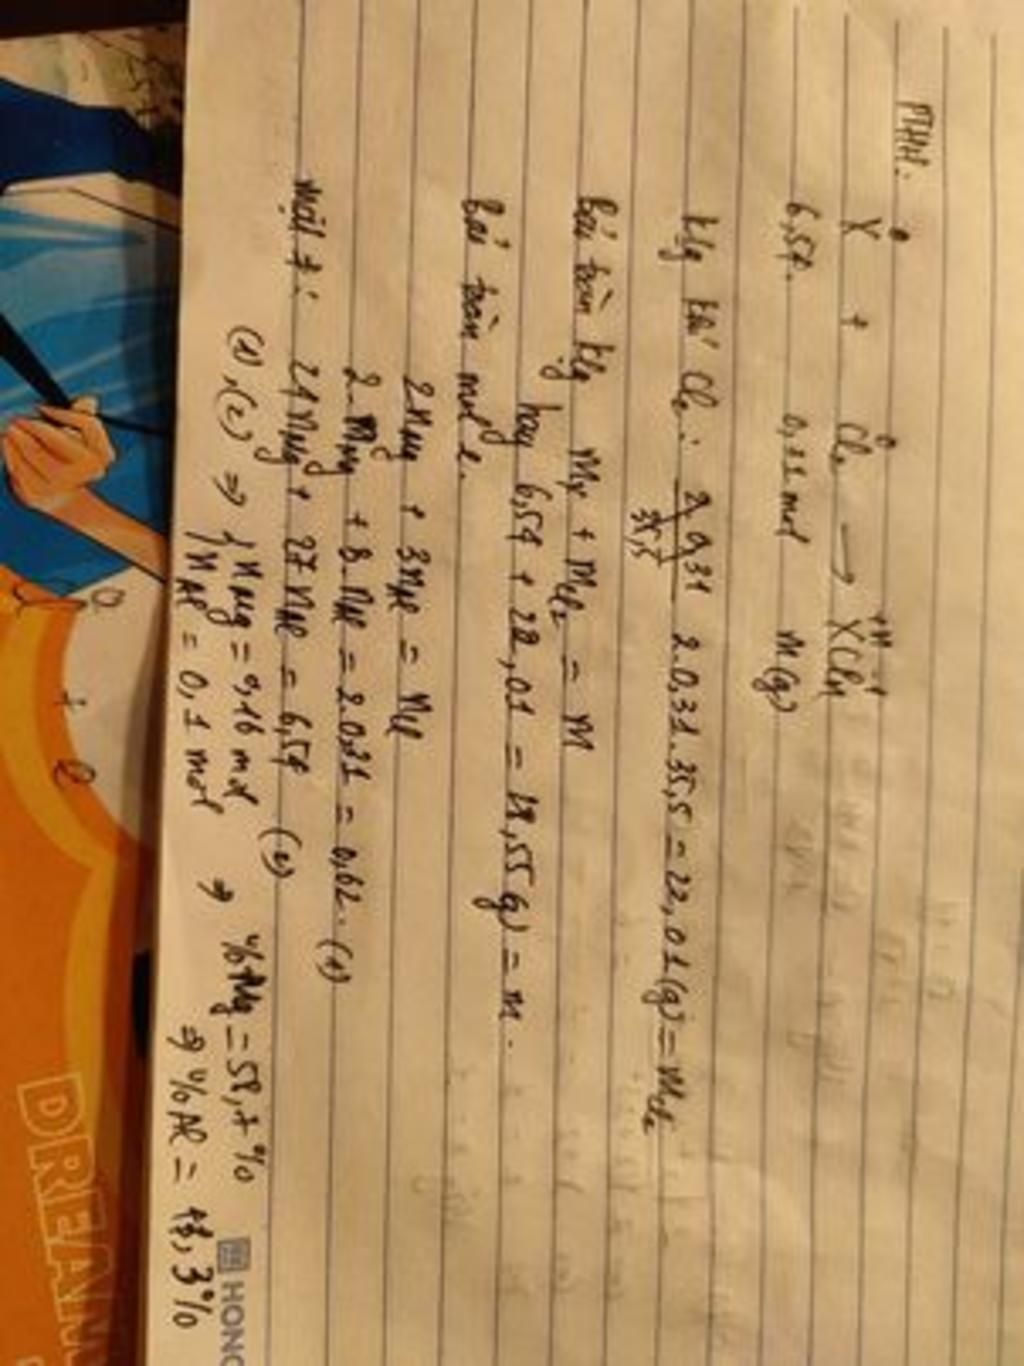 PTHH:
X + Cl₂ → XClₙ
0 0 +n -1
6,54 0,31 mol m(g)
klg khí Cl₂: 2.0,31 2.0,31.35,5 = 22,01(g) = mCl₂
35,5
Bảo toàn klg mX + mCl₂ = m
hay 6,54 + 22,01 = 28,55(g) = m.
Bảo toàn mol e.
2nMg + 3nAl = nCl
2.nMg + 3.nAl = 2.0,31 = 0,62. (1)
Mặt ≠: 24nMg + 27nAl = 6,54 (2)
(1),(2) ⇒ { nMg = 0,16 mol → %Mg = 58,7%
nAl = 0,1 mol ⇒ %Al = 41,3%
HONG
DREAM